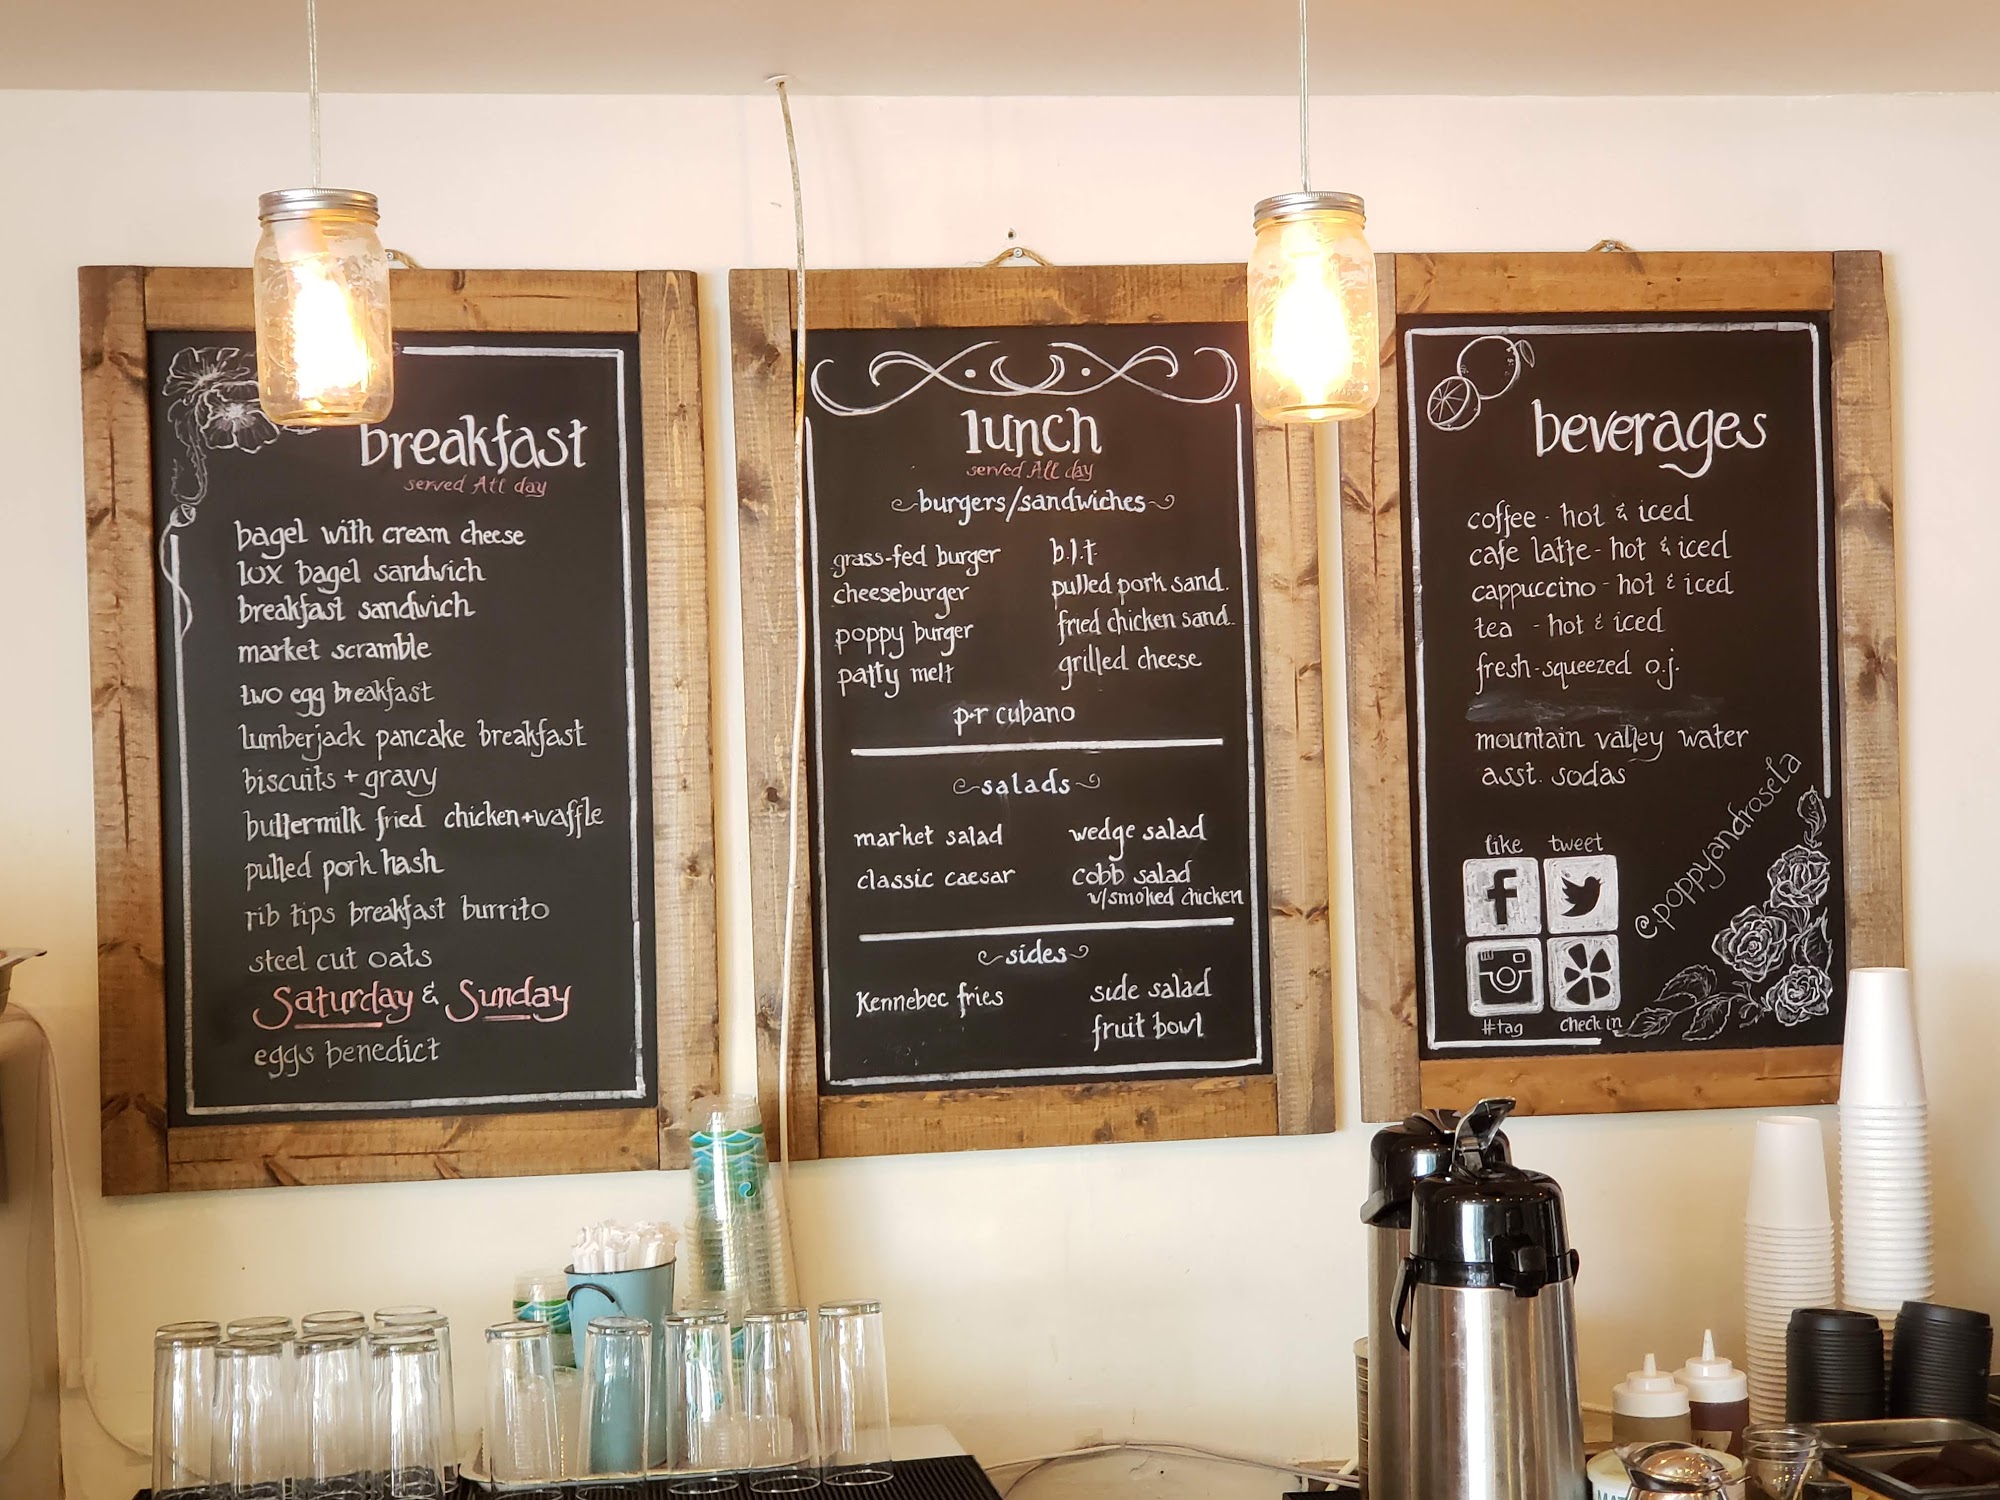 breakfast
served All day
bagel with cream cheese
lox bagel sandwich
breakfast sandwich
market scramble
two egg breakfast
lumberjack pancake breakfast
biscuits + gravy
buttermilk fried chicken+waffle
pulled pork hash
rib tips breakfast burrito
steel cut oats
Saturday & Sunday
eggs benedict
lunch
served All day
burgers/sandwiches
grass-fed burger
cheeseburger
poppy burger
patty melt
b.l.t.
pulled pork sand.
fried chicken sand.
grilled cheese
p+r cubano
salads
market salad
classic caesar
wedge salad
cobb salad
w/smoked chicken
sides
Kennebec fries
side salad
fruit bowl
beverages
coffee - hot & iced
cafe latte - hot & iced
cappuccino - hot & iced
tea - hot & iced
fresh-squeezed o.j.
mountain valley water
asst. sodas
like tweet
#tag check in
@poppyandrosela